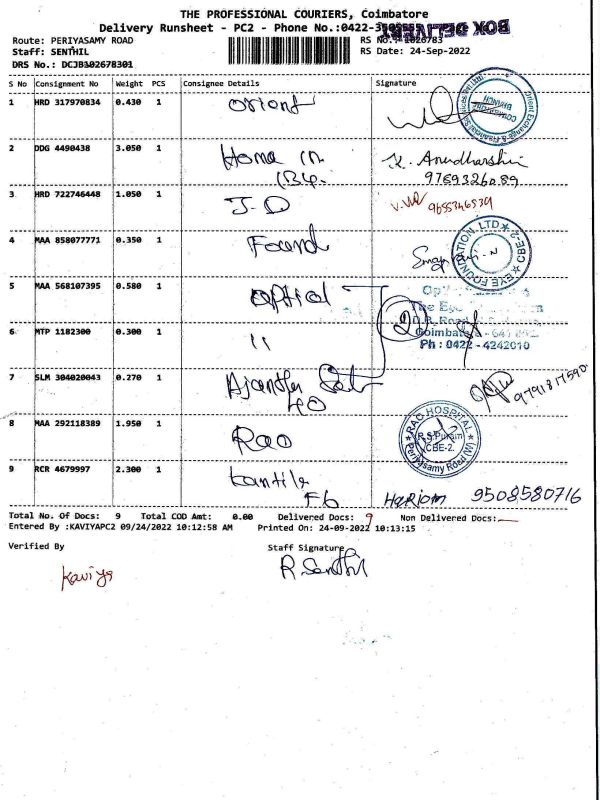 THE PROFESSIONAL COURIERS, Coimbatore
Delivery Runsheet - PC2 - Phone No.:0422-
BOX DELIVERY
Route: PERIYASAMY ROAD
RS No.: 1026783
Staff: SENTHIL
RS Date: 24-Sep-2022
DRS No.: DCJB102678301
S No Consignment No Weight PCS Consignee Details Signature
1 HRD 317970834 0.430 1 Orient
2 DDG 4490438 3.050 1 Home in
K. Anudharshini
9789326089
3 HRD 722746448 1.050 1 J-D
9655346539
4 MAA 858077771 0.350 1 Found
EYE FOUNDATION, LTD ★ CBE-2 ★
5 MAA 568107395 0.580 1 optical
The Eye
D.B. Road
Coimbatore - 641
Ph : 0422 - 4242010
6 MTP 1182300 0.300 1 "
2
7 SLM 304020043 0.270 1 Ajantha
9791817590
8 MAA 292118389 1.950 1 Rao
RAO HOSPITAL
R.S.Puram
CBE-2.
Periyasamy Road (W)
9 RCR 4679997 2.300 1
Hariom 9508580716
Total No. Of Docs: 9 Total COD Amt: 0.00 Delivered Docs: 9 Non Delivered Docs:
Entered By :KAVIYAPC2 09/24/2022 10:12:58 AM Printed On: 24-09-2022 10:13:15
Verified By Staff Signature
Kaviya R. Senthil